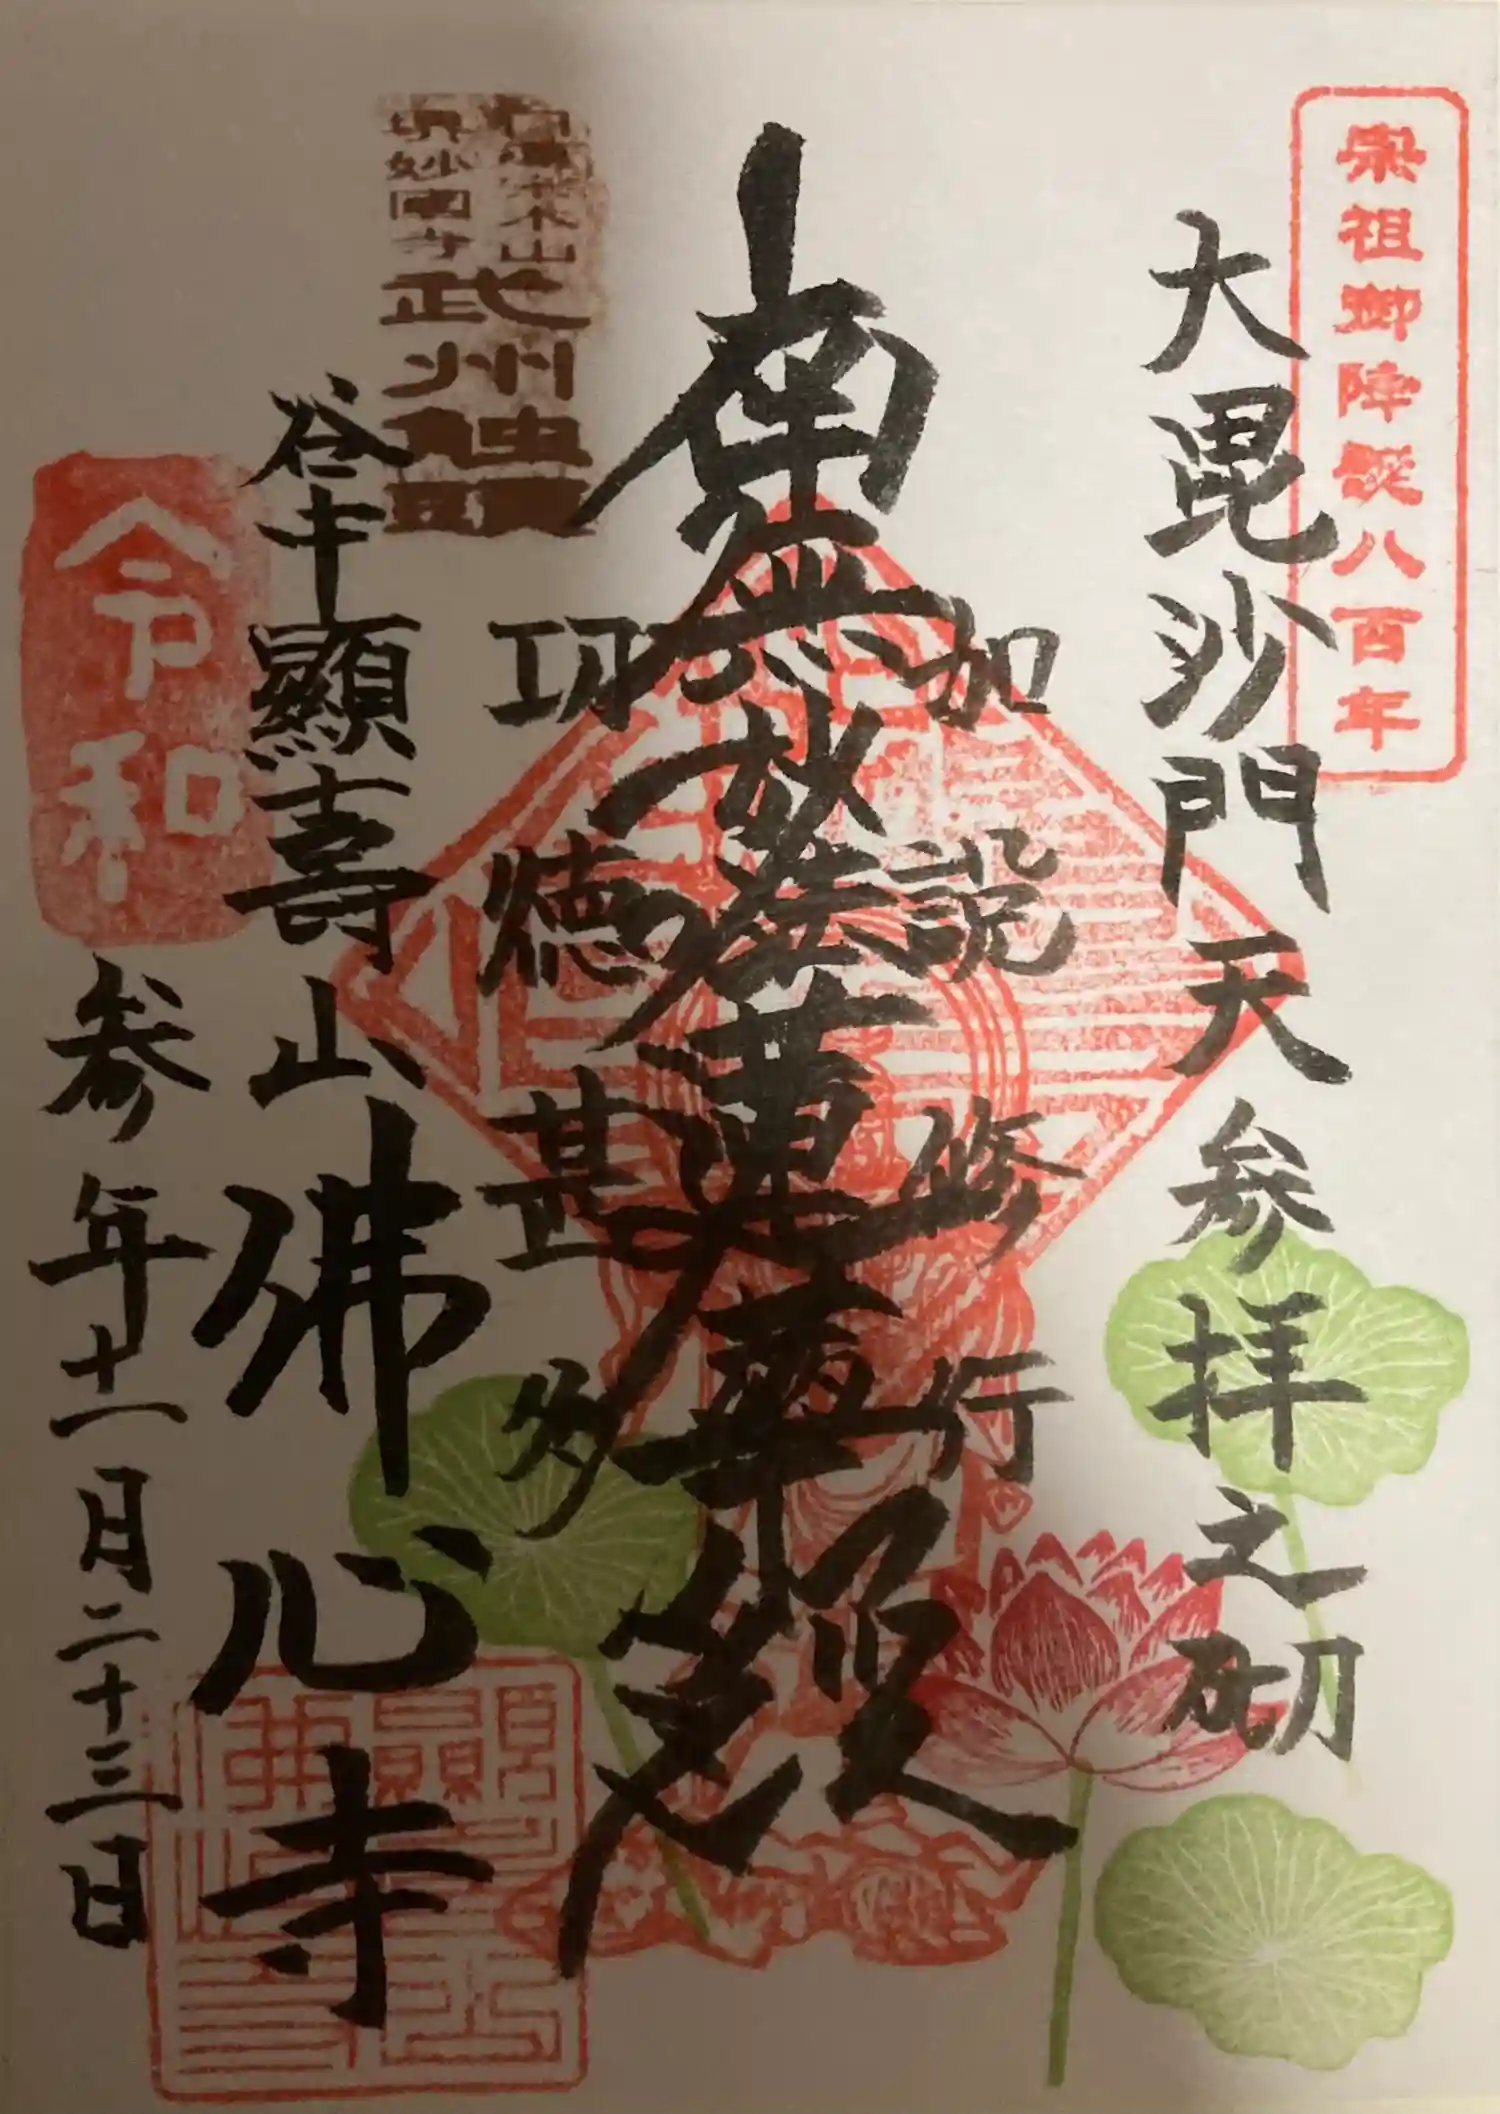 宗祖御降誕八百年
大毘沙門天参拝之砌
加説修行
南無妙法蓮華経
功徳甚多
武州触頭
顯壽山佛心寺
令和
参年十一月二十三日